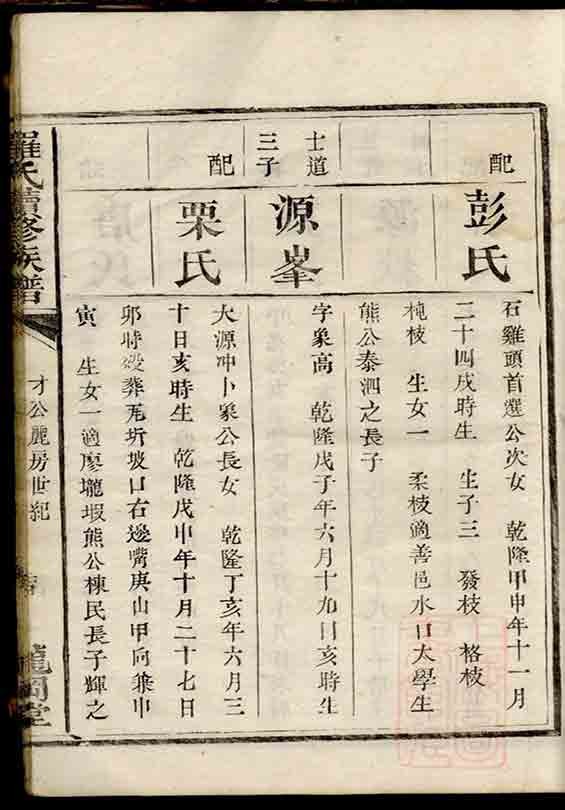 配
彭氏
石雞頭首選公次女 乾隆甲申年十一月
二十四戌時生 生子三 發枝 格枝
桃枝 生女一 柔枝適善邑水口大學生
熊公泰泗之長子
士道
三子
源峯
字象高 乾隆戊子年六月十九日亥時生
配
栗氏
大源冲卜象公長女 乾隆丁亥年六月三
十日亥時生 乾隆戊申年十月二十七日
卯時歿葬瓦圻坡口右邊嘴庚山甲向兼申
寅 生女一適廖壠瑕熊公棟民長子輝之
羅氏續修族譜
才公麗房世紀
龍岡堂